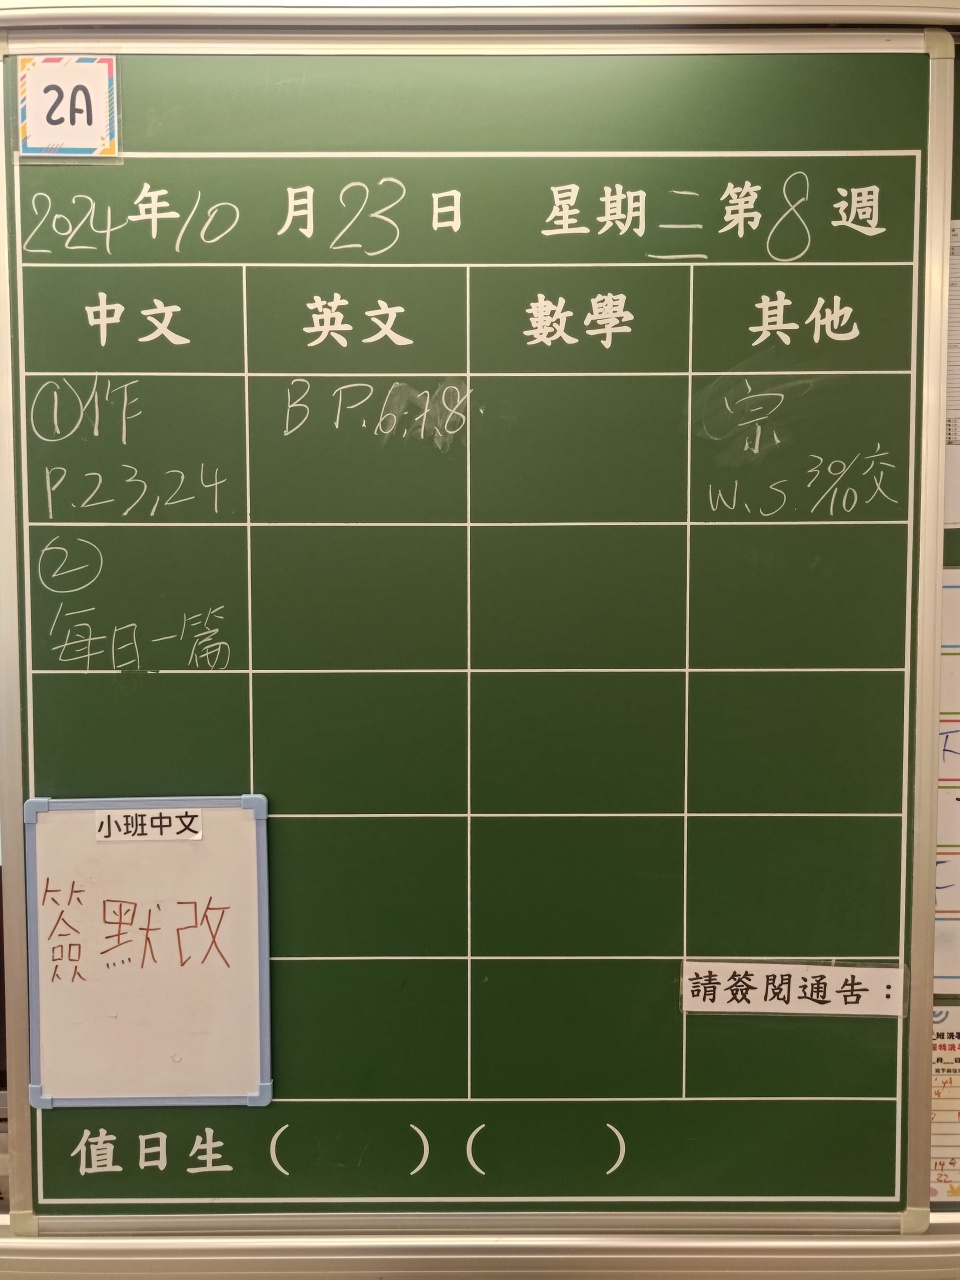 2A
2024年10月23日 星期三第8週
中文 英文 數學 其他
①作
P.23,24
B P.6,7,8
宗
W.S. 30/10交
②
每日一篇
小班中文
簽默改
請簽閱通告：
值日生（ ）（ ）